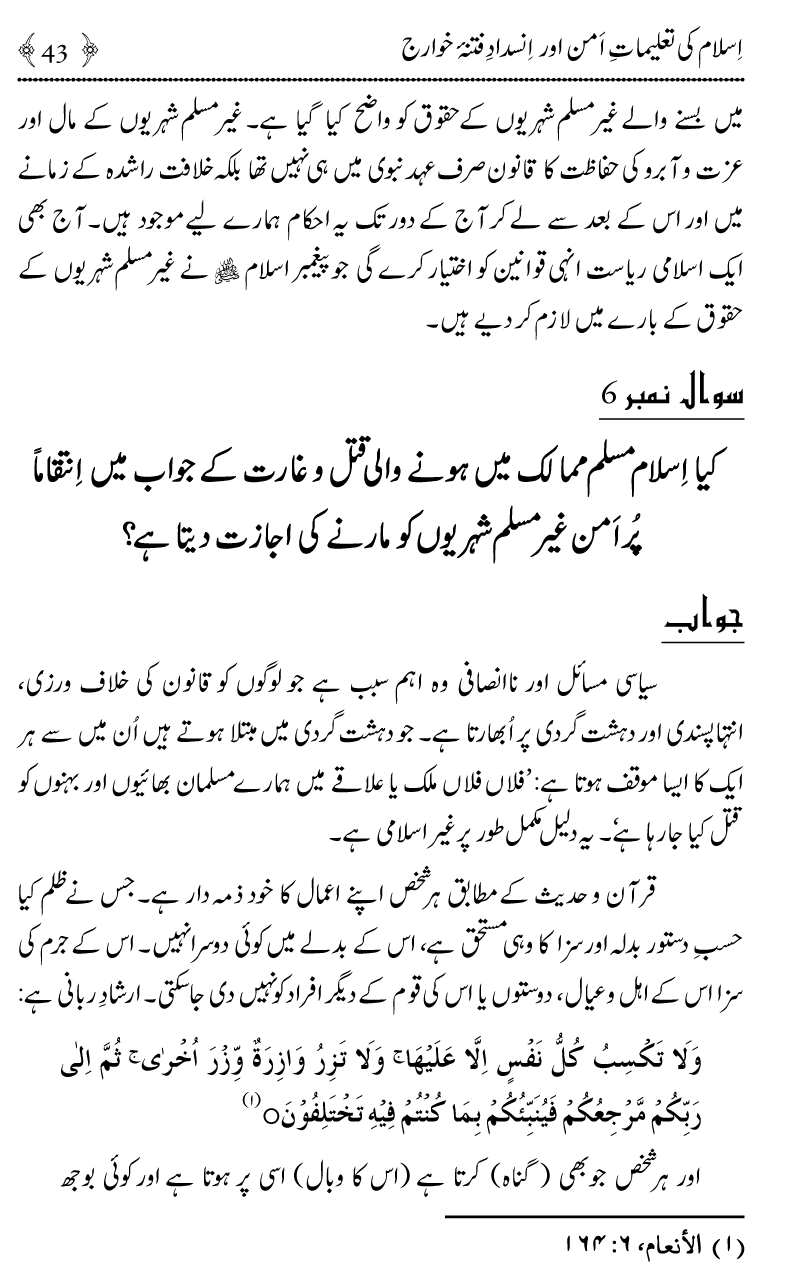 اِسلام کی تعلیماتِ اَمن اور اِنسدادِ فتنۂ خوارج ﴿ 43 ﴾
میں بسنے والے غیر مسلم شہریوں کے حقوق کو واضح کیا گیا ہے۔ غیر مسلم شہریوں کے مال اور
عزت و آبرو کی حفاظت کا قانون صرف عہد نبوی میں ہی نہیں تھا بلکہ خلافت راشدہ کے زمانے
میں اور اس کے بعد سے لے کر آج کے دور تک یہ احکام ہمارے لیے موجود ہیں۔ آج بھی
ایک اسلامی ریاست انہی قوانین کو اختیار کرے گی جو پیغمبر اسلام ﷺ نے غیر مسلم شہریوں کے
حقوق کے بارے میں لازم کر دیے ہیں۔
سوال نمبر 6
کیا اِسلام مسلم ممالک میں ہونے والی قتل و غارت کے جواب میں اِنتقاماً
پُر اَمن غیر مسلم شہریوں کو مارنے کی اجازت دیتا ہے؟
جواب
سیاسی مسائل اور ناانصافی وہ اہم سبب ہے جو لوگوں کو قانون کی خلاف ورزی،
انتہا پسندی اور دہشت گردی پر اُبھارتا ہے۔ جو دہشت گردی میں مبتلا ہوتے ہیں اُن میں سے ہر
ایک کا ایسا موقف ہوتا ہے: ’فلاں فلاں ملک یا علاقے میں ہمارے مسلمان بھائیوں اور بہنوں کو
قتل کیا جا رہا ہے‘۔ یہ دلیل مکمل طور پر غیر اسلامی ہے۔
قرآن و حدیث کے مطابق ہر شخص اپنے اعمال کا خود ذمہ دار ہے۔ جس نے ظلم کیا
حسبِ دستور بدلہ اور سزا کا وہی مستحق ہے، اس کے بدلے میں کوئی دوسرا نہیں۔ اس کے جرم کی
سزا اس کے اہل و عیال، دوستوں یا اس کی قوم کے دیگر افراد کو نہیں دی جاسکتی۔ ارشادِ ربانی ہے:
وَلَا تَكْسِبُ كُلُّ نَفْسٍ اِلَّا عَلَيْهَا ۚ وَلَا تَزِرُ وَازِرَةٌ وِّزْرَ اُخْرٰى ۚ ثُمَّ اِلٰى
رَبِّكُمْ مَّرْجِعُكُمْ فَيُنَبِّئُكُمْ بِمَا كُنْتُمْ فِيْهِ تَخْتَلِفُوْنَ○(۱)
اور ہر شخص جو بھی (گناہ) کرتا ہے (اس کا وبال) اسی پر ہوتا ہے اور کوئی بوجھ
(۱) الأنعام، ۶: ۱۶۴